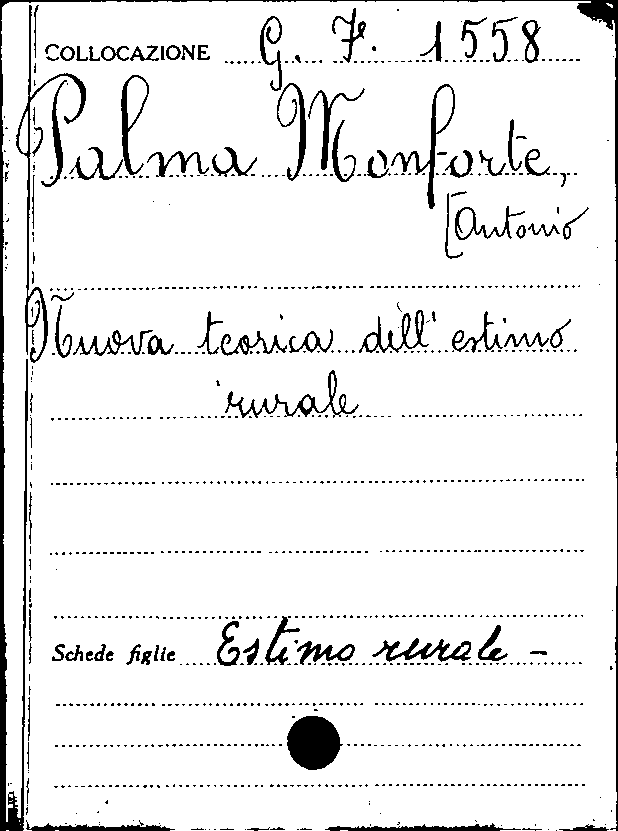 COLLOCAZIONE G. F. 1558
Palma Monforte,
[Antonio
Nuova teorica dell' estimo
rurale
Schede figlie Estimo rurale -